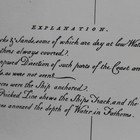 EXPLANATION.
ks & Sands, some of which are dry at low Wate
thers always covered.
mposed Direction of such parts of the Coast as
k as was not seen.
eres were the Ship anchored.
Pricked Line shews the Ship's Track and the
es annexed the depth of Water in Fathoms